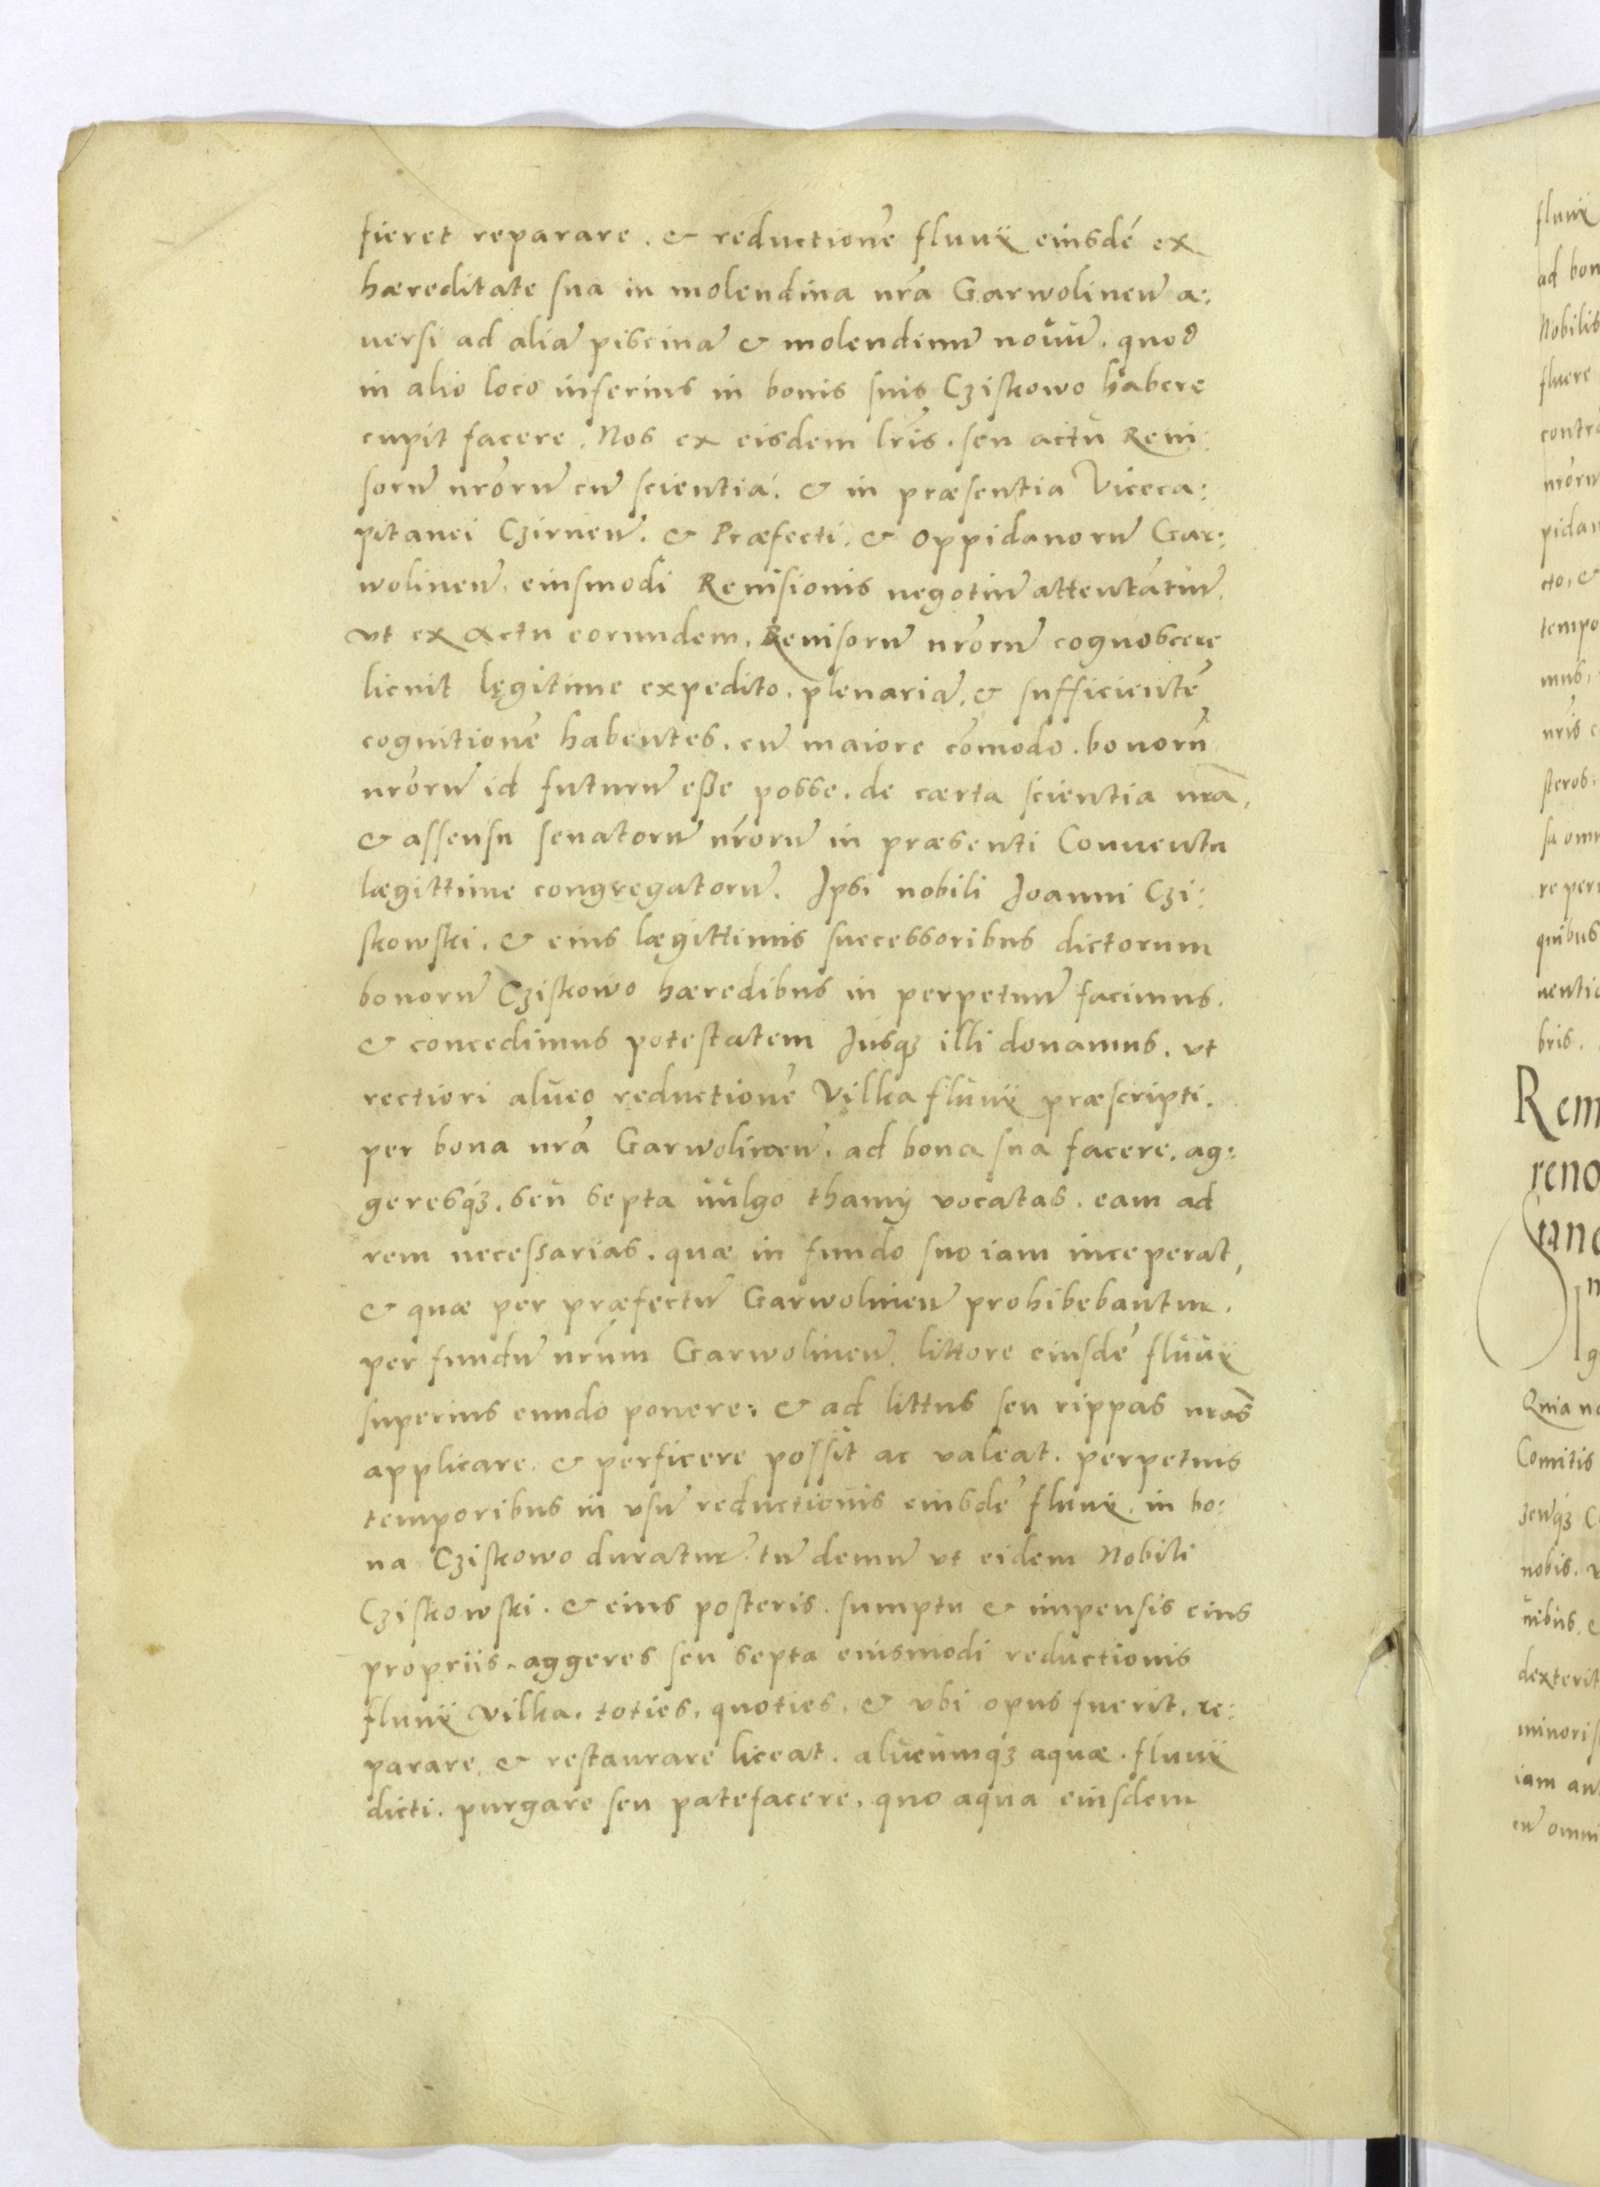 fieret reparare. & reductionē fluuij eiusdē ex
hæreditate sua in molendina nrā Garwolineñ a:
uersi ad aliā piscinā & molendinū nouū. quod
in alio loco inferius in bonis suis Cziskowo habere
cupit facere. Nos ex eisdem lris. seu actu Reui:
sorū nrorū cū scientia. & in præsentia Viceca:
pitanei Czirneñ. & Præfecti. & Oppidanorū Gar:
wolineñ. eiusmodi Reuisionis negotiū attentatū.
vt ex Actu eorundem. Reuisorū nrorū cognoscere
licuit lęgitime expedito. plenariā. & sufficientē
cognitionē habentes. cū maiore cōmodo. bonorū
nrorū id futurū eße posse. de cærta scientia nrā.
& assensu senatorū nrorū in præsenti Conuentu
lægittime congregatorū. Ipsi nobili Joanni Czi:
skowski. & eius lægittimis successoribus dictorum
bonorū Cziskowo hæredibus in perpetuū facimus.
& concedimus potestatem Jusqȝ illi donamus. vt
rectiori alueo reductionē Vilka fluuij præscripti.
per bona nrā Garwolineñ. ad bona sua facere. ag:
geresqȝ. seu septa uulgo thamÿ vocatas. eam ad
rem necessarias. quæ in fundo suo iam inceperat,
& quæ per præfectū Garwolineñ prohibebantur.
per fundū nrūm Garwolineñ. littore eiusdē fluuij
superius eundo ponere: & ad littus seu rippas nrās
applicare. & perficere possit ac valeat. perpetuis
temporibus in vsū reductionis eiusdē fluuij. in bo:
na Cziskowo duratur. tū demū vt eidem Nobili
Cziskowski. & eius posteris. sumptu & impensis eius
propriis. aggeres seu septa eiusmodi reductionis
fluuij Vilka. toties. quoties. & vbi opus fuerit. re:
parare. & restaurare liceat. alueumqȝ aquæ. fluuij
dicti. purgare seu patefacere. quo aqua eiusdem
fluuij
ad bon
Nobilis
fluere
contra
nrorū
pidan
cto, &
tempo
mus,
nris c
steros.
su omn
re per
quibus
uentio
bris.
Rem
reno
Quia no
Comitis
nobis. v
uibus. &
dexterit
minoris
iam an
cū omni